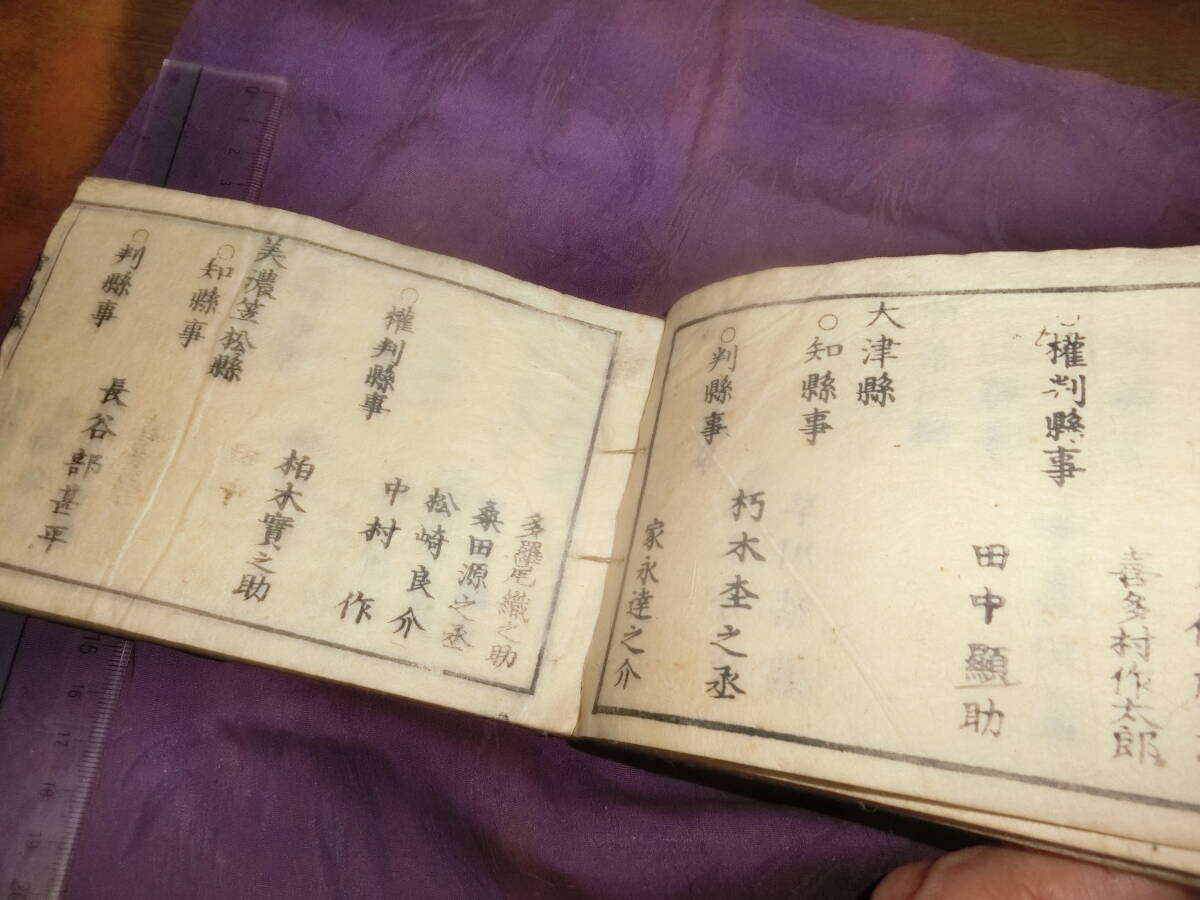 喜多村作太郎
○權判縣事
田中顯助
大津縣
○知縣事
朽木圶之丞
○判縣事
家永達之介
多羅尾織之助
桑田源之丞
松崎良介
○權判縣事
中村 作
美濃笠松縣
○知縣事
柏木寶之助
○判縣事
長谷部甚平
0
2
3
15
16
17
18
19
20